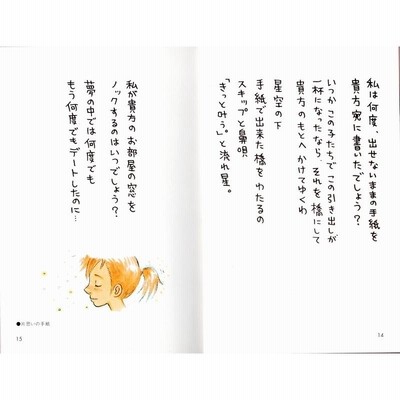 私は何度、出せないままの手紙を
貴方宛に書いたでしょう？
いつかこの子たちでこの引き出しが
一杯になったなら、それを橋にして
貴方のもとへかけてゆくわ
星空の下
手紙で出来た橋をわたるの
スキップと鼻唄
「きっと叶う。」と流れ星。
14
私が貴方のお部屋の窓を
ノックするのはいつでしょう？
夢の中では何度でも
もう何度でもデートしたのに…
●片想いの手紙
15